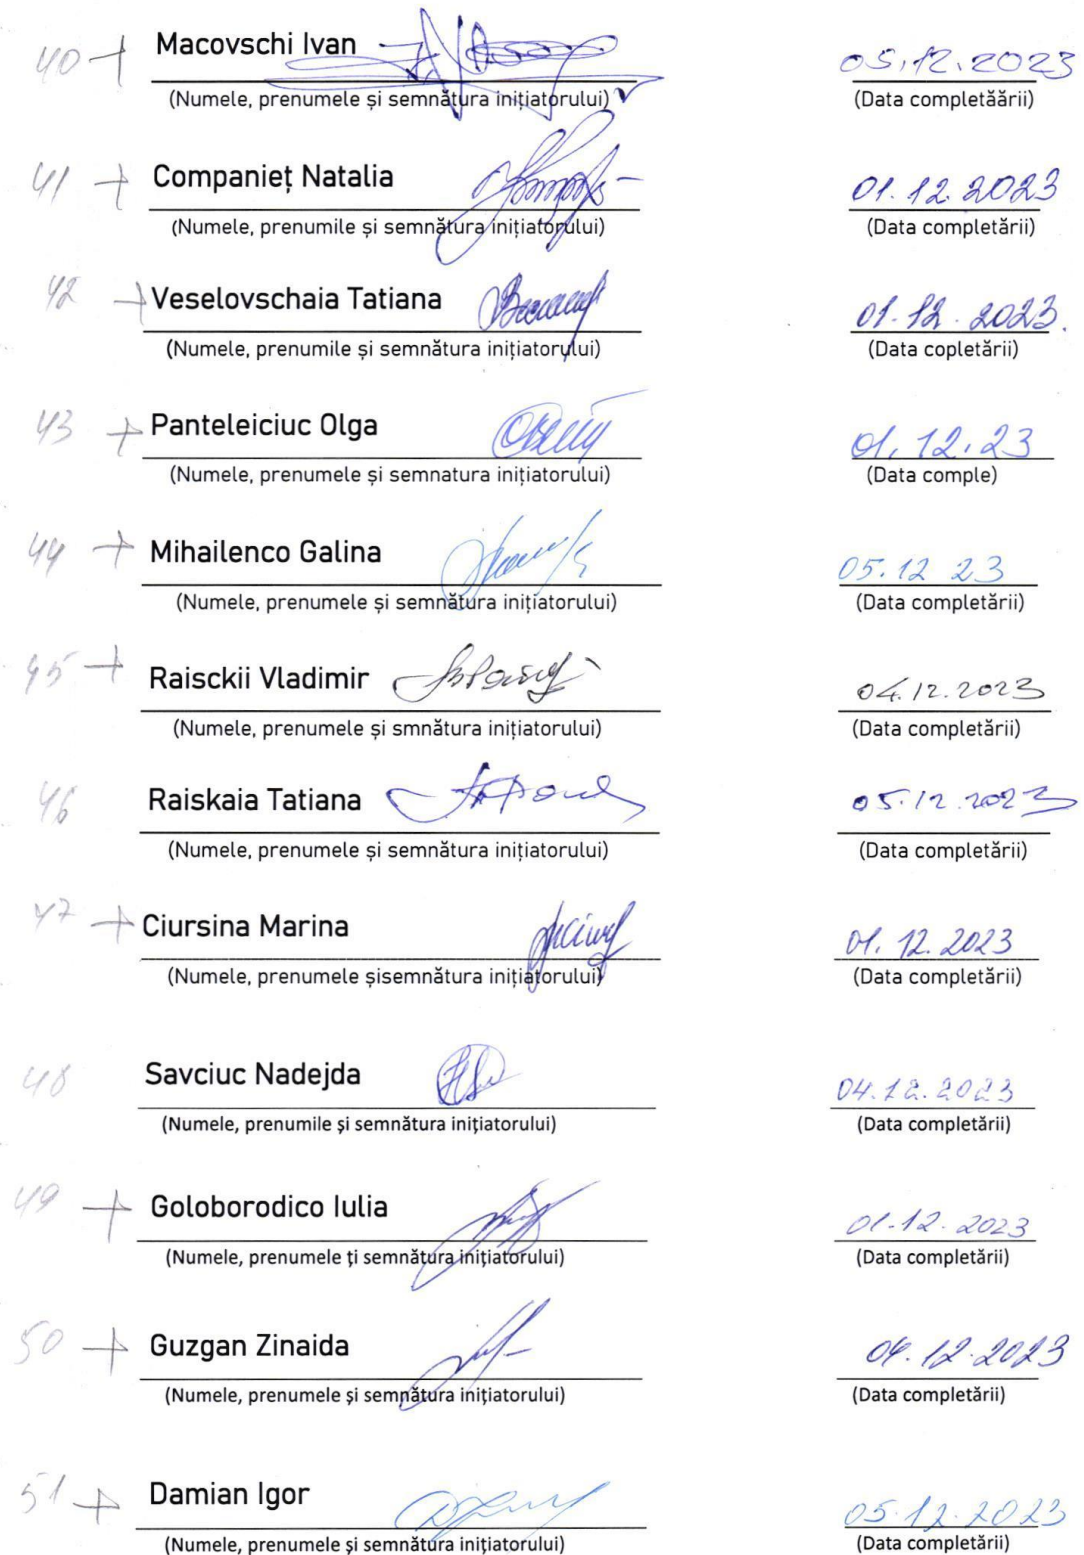 40 + Macovschi Ivan 05.12.2023
(Numele, prenumele și semnătura inițiatorului) (Data completăării)
41 + Companieț Natalia 01.12.2023
(Numele, prenumile și semnătura inițiatorului) (Data completării)
42 + Veselovschaia Tatiana 01.12.2023.
(Numele, prenumile și semnătura inițiatorului) (Data copletării)
43 + Panteleiciuc Olga 01.12.23
(Numele, prenumele și semnatura inițiatorului) (Data comple)
44 + Mihailenco Galina 05.12 23
(Numele, prenumele și semnătura inițiatorului) (Data completării)
45 + Raisckii Vladimir 04.12.2023
(Numele, prenumele și smnătura inițiatorului) (Data completării)
46 Raiskaia Tatiana 05.12.2023
(Numele, prenumele și semnătura inițiatorului) (Data completării)
47 + Ciursina Marina 01.12.2023
(Numele, prenumele șisemnătura inițiatorului) (Data completării)
48 Savciuc Nadejda 04.12.2023
(Numele, prenumile și semnătura inițiatorului) (Data completării)
49 + Goloborodico Iulia 01.12.2023
(Numele, prenumele ți semnătura inițiatorului) (Data completării)
50 + Guzgan Zinaida 12.2023
(Numele, prenumele și semnătura inițiatorului) (Data completării)
51 + Damian Igor 05.12.2023
(Numele, prenumele și semnătura inițiatorului) (Data completării)